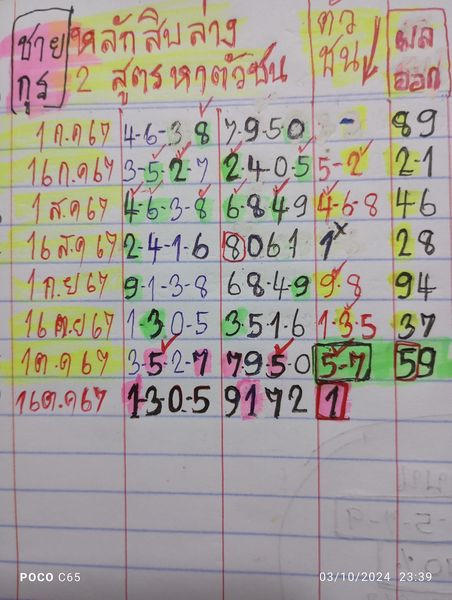 ชาย หลักสิบล่าง ตัว ผล
กุร 2 สูตรหาตัวชน ชน ออก
1 ก.ค 67 4-6-3-8 7.9.5-0 - 89
16 ก.ค 67 3-5-2-7 2.4.0.5 5-2 2-1
1 ส.ค 67 4-6-3-8 6-8.49 4-6-8 46
16 ส.ค 67 2-4-1-6 8061 1x 28
1 ก.ย 67 9-1-3-8 68.4.9 9.8 94
16 ต.ย 67 1.3.0.5 3.5.1.6 1.3.5 37
1 ต.ค 67 3-5-2-7 7.95.0 5-7 59
16 ต.ค 67 1-3-0-5 9172 1
POCO C65 03/10/2024 23:39